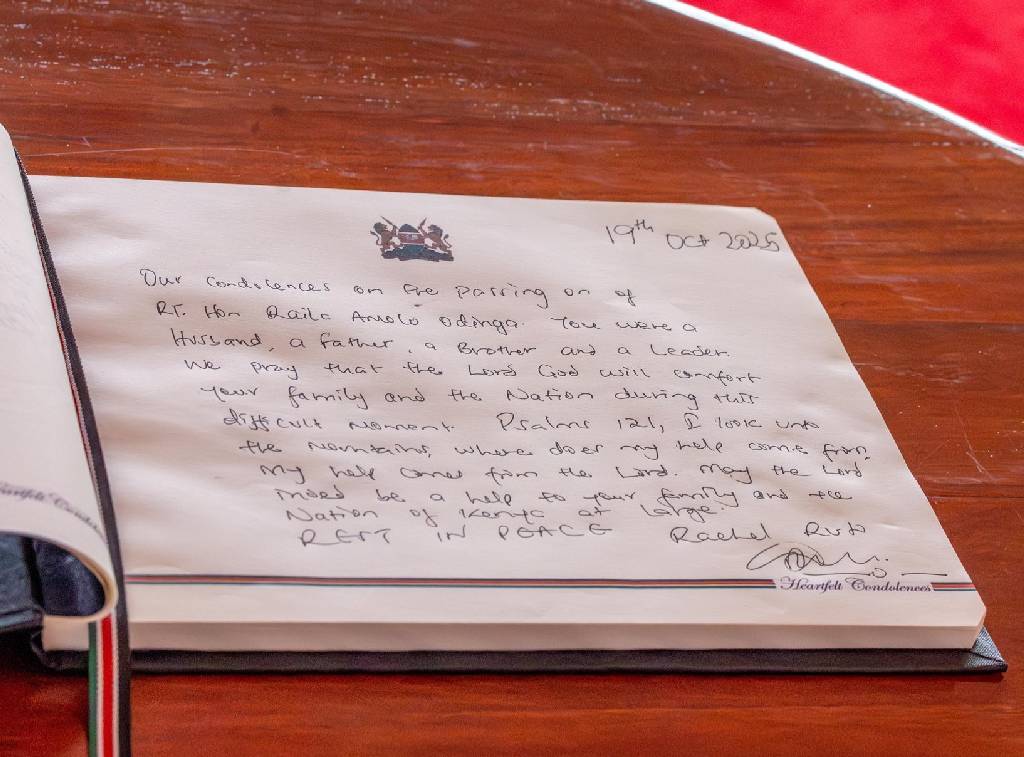 19th Oct 2025
Our condolences on the passing on of
RT. Hon Raila Amolo Odinga. You were a
Husband, a father, a Brother and a Leader.
We pray that the Lord God will comfort
your family and the Nation during this
difficult moment. Psalms 121, I look unto
the mountains, where does my help come from,
my help comes from the Lord. May the Lord
indeed be a help to your family and the
Nation of Kenya at large.
REST IN PEACE Rachel Ruto
Heartfelt Condolences
Heartfelt Condolences